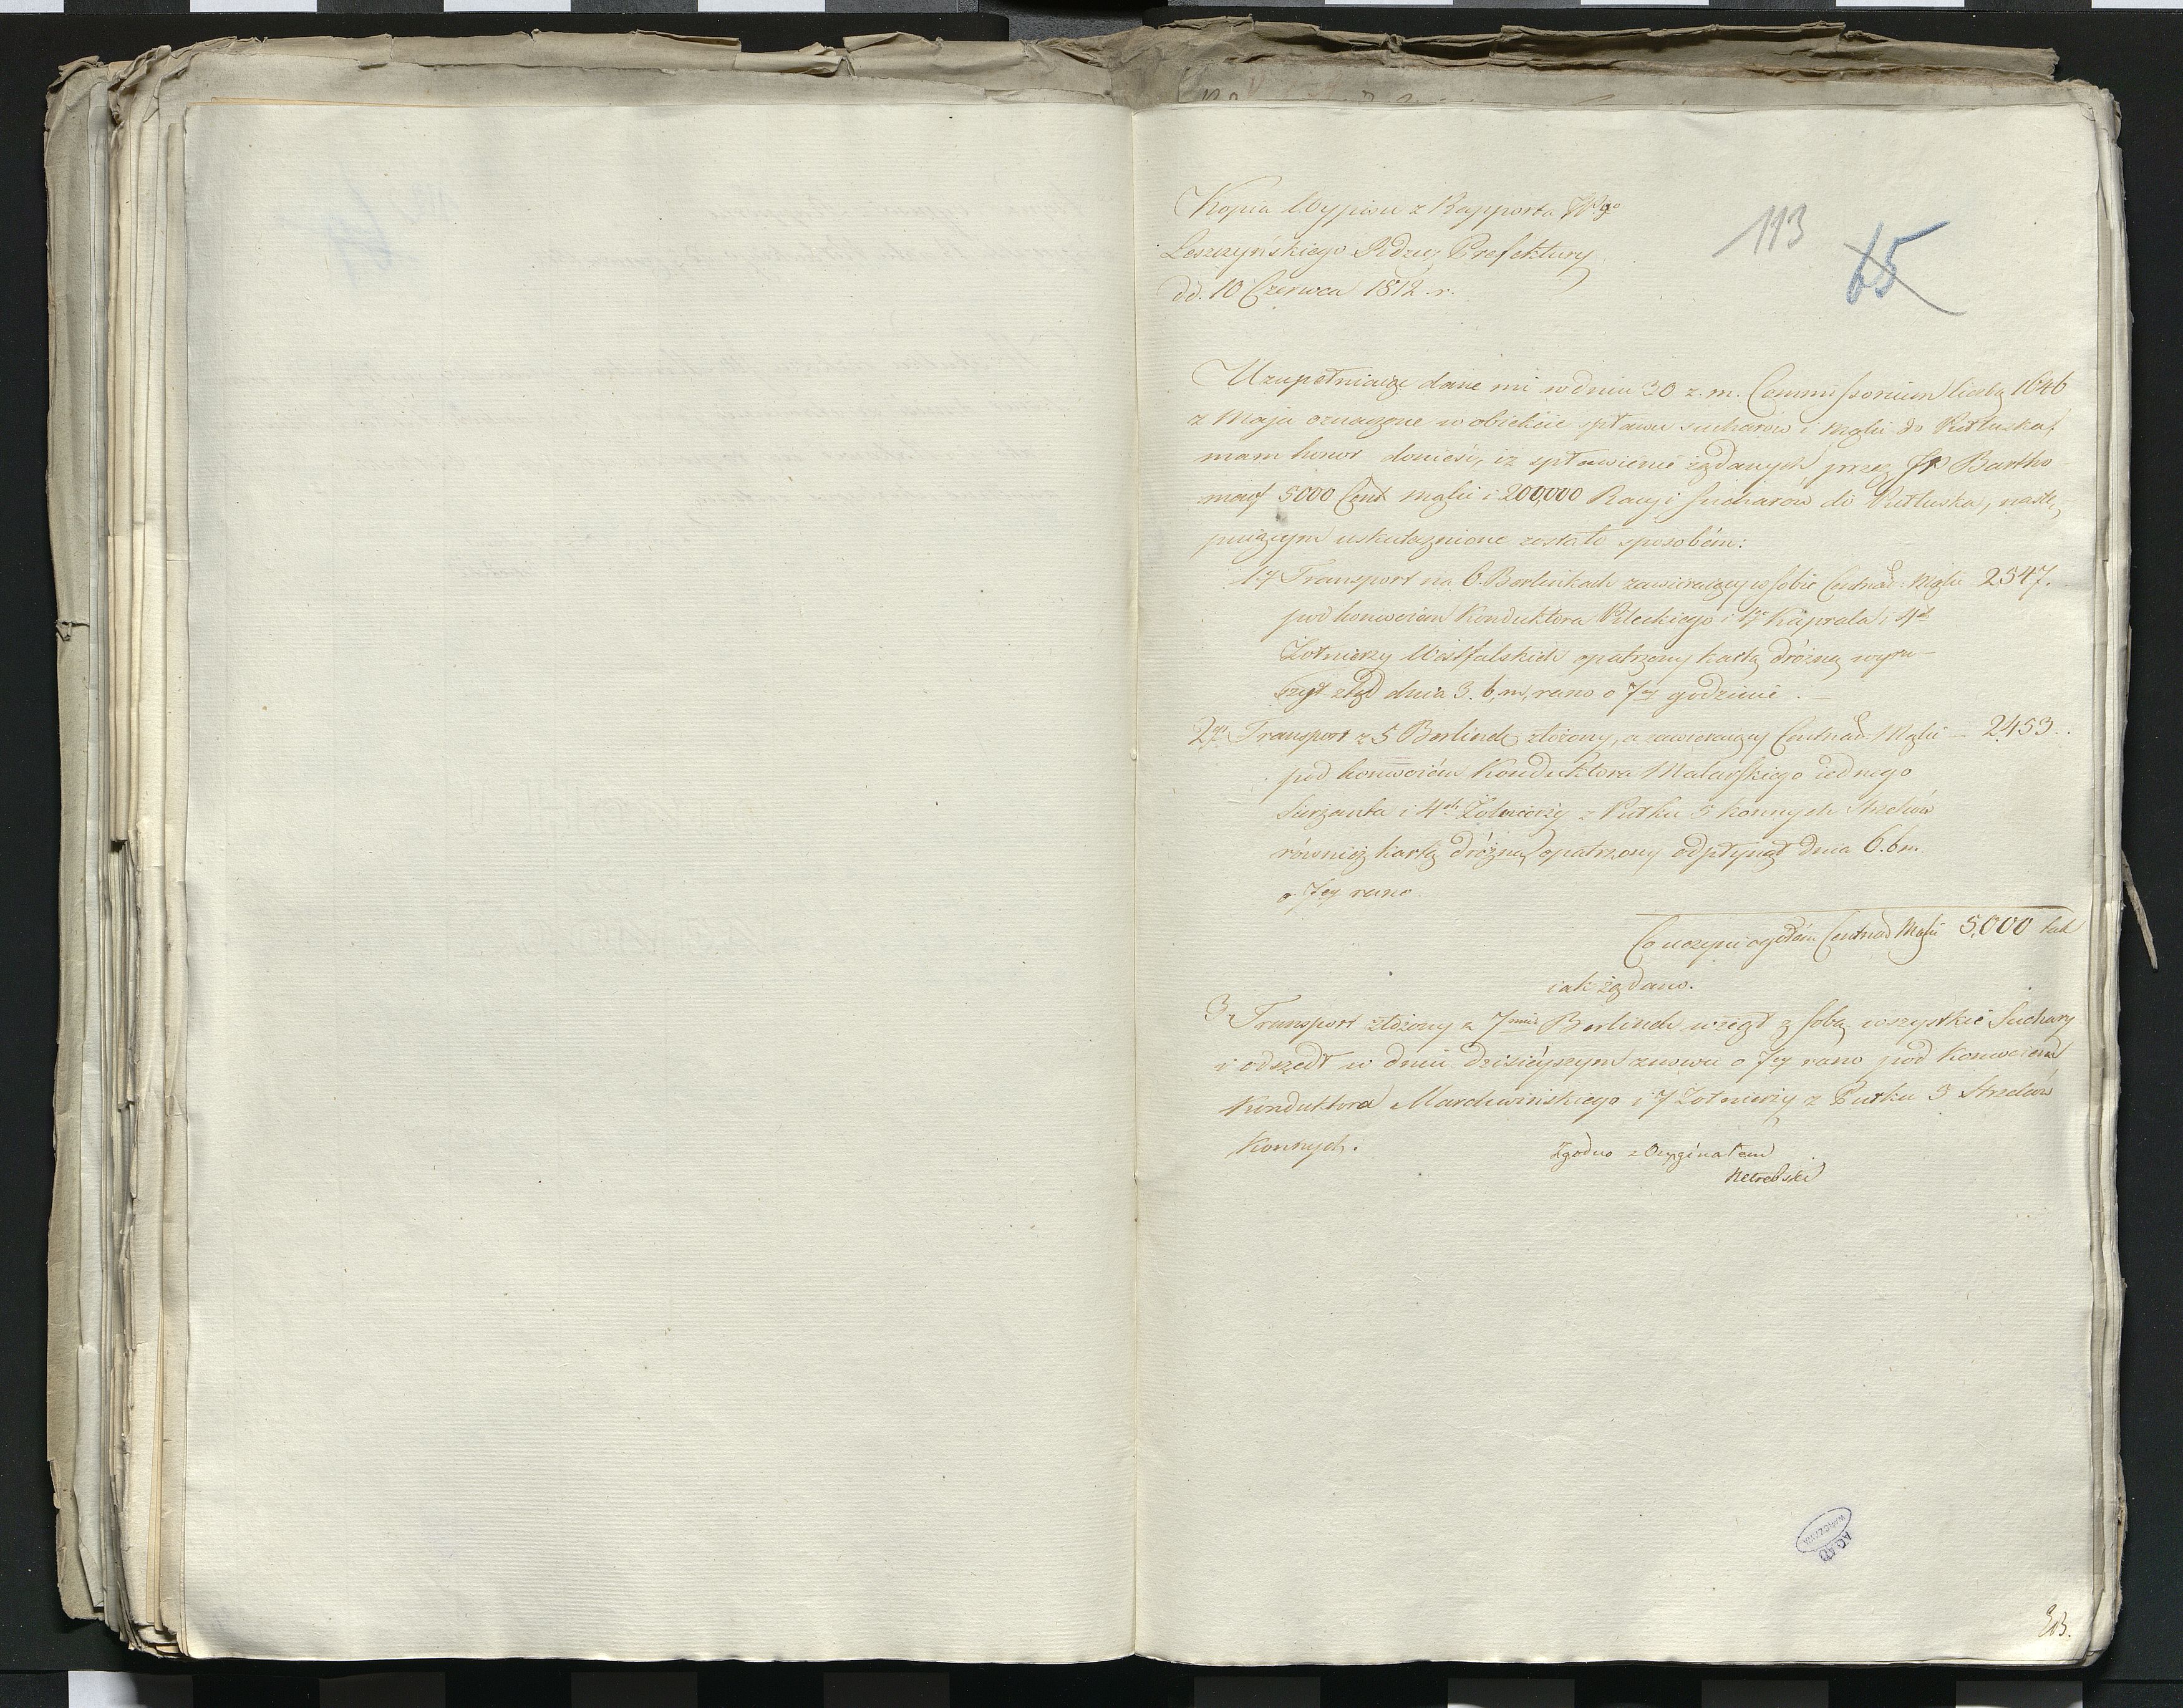 113
65
Kopia Wypisu z Rapportu W°go
Leszczyńskiego Rdzcy Prefektury
dd. 10 Czerwca 1812 r.
Uzupełniaiąc dane mi w dniu 30 z. m. Commissorium liczbą 1646
z Maja oznaczone w obiekcie spławu sucharów i Mąki do Pułtuska,
mam honor donieść, iż spławienie żądanych przez JP Bartho
mouf 5000 Cent mąki i 200,000 Racyi sucharów do Pułtuska, nastę,
puiącym uskutecznione zostało sposobem:
1y Transport na 6. Berlinkach zawieraiący w sobie Centnar: Mąki 2547.
pod konwoiem Konduktora Pileckiego i 1go Kaprala i 4ch
Żołnierzy Westfalskich opatrzony kartą drożną wyru-
szył ztąd dnia 3. b. m. rano o 7ey godzinie. —
2gi Transport z 5 Berlinek złożony, a zawieraiący Centnar: Mąki — 2453.
pod konwoiem Konduktora Malarskiego iednego
Sierżanta i 4ch Żołnierzy z Pułku 5 konnych Strzelców
również kartą drożną opatrzony odpłynął dnia 6. b m.
o 7ey rano.
Co uczyni ogółem Centnar Mąki 5,000 tak
iak żądano.
3. Transport złożony z 7miu Berlinek wziął z sobą wszystkie Suchary
i odszedł w dniu dzisieyszym znowu o 7ey rano pod Konwoiem
Konduktora Marchwińskiego i 7 Żołnierzy z Pułku 3 Strzelców
Konnych.
Zgodno z Oryginałem
Netrebski
AGAD
WARSZAWA